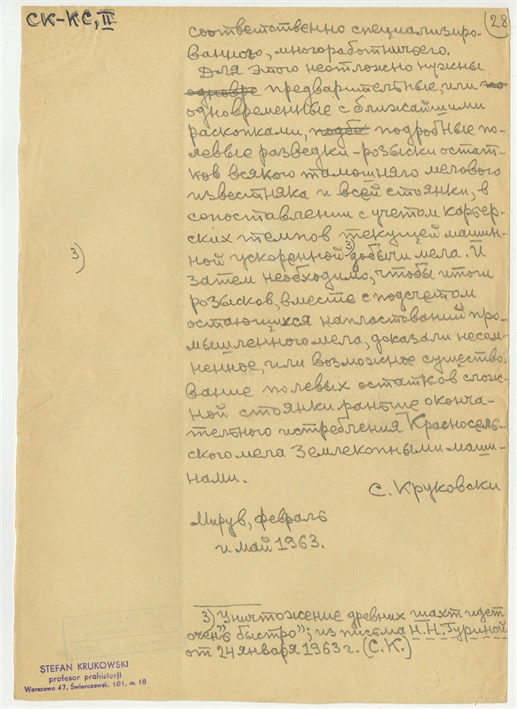 СК-КС, II
28
соответственно специализиро-
ванного, многоработничьего.
Для этого неотложно нужны
предварительные, или
одновременные с ближайшими
раскопками, подробные по-
левые разведки-розыски остат-
ков всякого тамошняго мелового
известняка и всей стоянки, в
сопоставлении с учетом карьер-
ских темпов текущей машин-
ной ускоренной 3) добычи мела. И
3)
затем необходимо, чтобы итоги
розысков, вместе с подсчетом
остающихся напластований про-
мышленного мела, доказали несом-
ненное, или возможное существо-
вание полевых остатков слож-
ной стоянки раньше оконча-
тельного истребления Красносель-
ского мела землекопными маши-
нами.
С. Круковски
Мирув, февраль
и май 1963.
3) "Уничтожение древних шахт идет
очень быстро"; из письма Н.Н. Гуриной
от 24 января 1963 г. (С.К.)
STEFAN KRUKOWSKI
profesor prahistorji
Warszawa 47, Świerczewsk. 101, m. 10